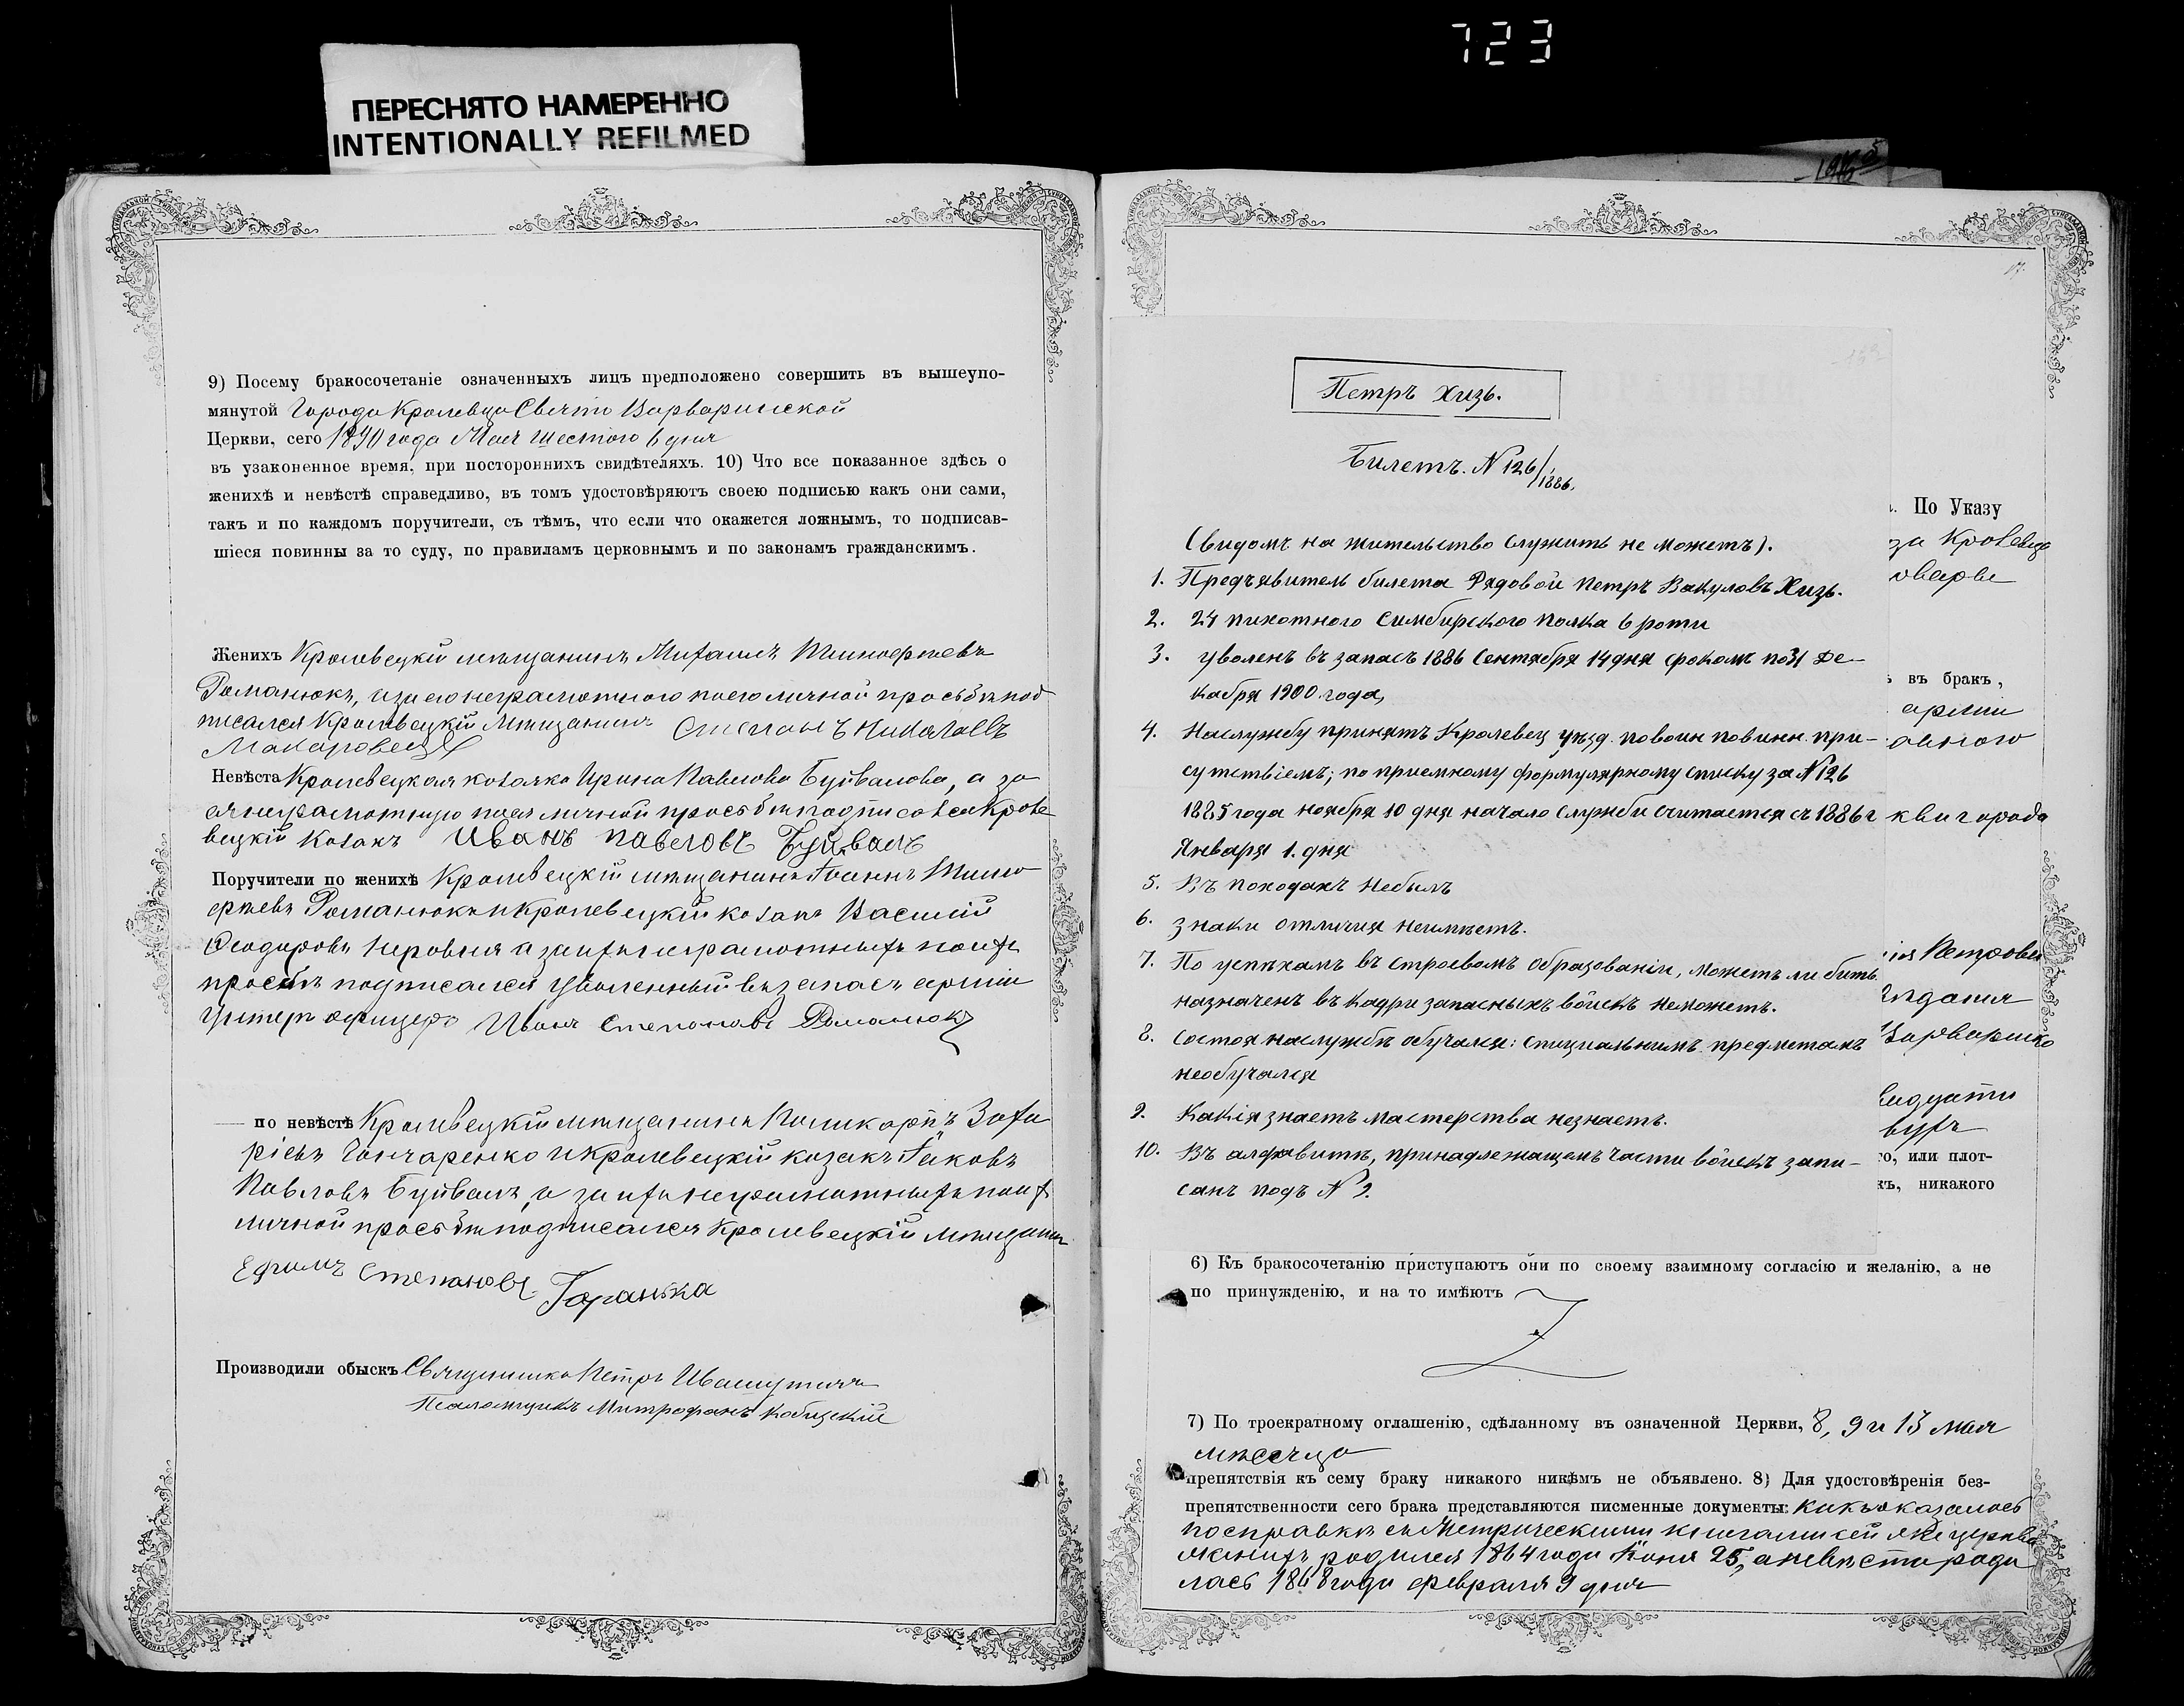 723
ПЕРЕСНЯТО НАМЕРЕННО
INTENTIONALLY REFILMED
9) Посему бракосочетаніе означенныхъ лицъ предположено совершить въ вышеупо-
мянутой Города Кролевца Свято Варваринской
Церкви, сего 1890 года Мая шестого 6 дня
въ узаконенное время, при постороннихъ свидѣтеляхъ. 10) Что все показанное здѣсь о
женихѣ и невѣстѣ справедливо, въ томъ удостовѣряютъ своею подписью какъ они сами,
такъ и по каждомъ поручители, съ тѣмъ, что если что окажется ложнымъ, то подписав-
шіеся повинны за то суду, по правиламъ церковнымъ и по законамъ гражданскимъ.
Женихъ Кролевецкій мѣщанинъ Михаилъ Тимофеевъ
Романюкъ, а за его неграмотного по его личной просьбѣ под
писался Кролевецкій Мѣщанинъ Степанъ Николаевъ
Макаровецъ
Невѣста Кролевецкая козачка Ирина Павлова Буйвалова, а за
ея неграмотную по ея личной просьбѣ подписался Кроле
вецкій Козакъ Иванъ Павловъ Буйвалъ
Поручители по женихѣ Кролевецкій мѣщанинъ Іоаннъ Тимо
феевъ Романюкъ и Кролевецкій козакъ Василій
Ѳеодоровъ а за ихъ неграмотныхъ по ихъ
просьбѣ подписался Уволенный въ запасъ арміи
Унтеръ офицеръ Иванъ Степановъ Романюкъ
— по невѣстѣ Кролевецкій мѣщанинъ Поликарпъ Заха
ріевъ Гончаренко и Кролевецкій козакъ Іаковъ
Павловъ Буйвалъ, а за ихъ неграмотныхъ по ихъ
личной просьбѣ подписался Кролевецкій мѣщанин
Ефимъ Степановъ Гаранька
Производили обыскъ Священникъ Петръ
Псаломщикъ Митрофанъ
Петръ Хизь.
Билетъ. N 126/1886.
(видомъ на жительство служить не можетъ).
1. Предъявитель билета Рядовой Петръ Вакуловъ Хизь.
2. 24 пихотного Симбирского полка 6 роти
3. уволенъ въ запасъ 1886 Сентября 14 дня срокомъ по 31 Де-
кабря 1900 года,
4. На службу принятъ Кролевец уѣзд. по воин повинн. при-
сутствіемъ; по приемному формулярному списку за N 126
1885 года ноября 10 дня начало служби считается съ 1886 г
Января 1. дня
5. Въ походахъ небылъ
6. знаки отличия неимѣетъ.
7. По успѣхамъ въ строевомъ образованіи, можетъ ли бить
назначенъ въ кадри запаснихъ войскъ неможетъ.
8. Состоя на службѣ обучался: специальнимъ предметамъ
необучался
9. Какія знаетъ мастерства незнаетъ.
10. Въ алфавитѣ, принадлежащемъ части войскъ запи-
санъ подъ N 9.
По Указу
въ бракъ,
арміи
кви города
Петрова
или плот-
никакого
6) Къ бракосочетанію приступаютъ они по своему взаимному согласію и желанію, а не
по принужденію, и на то имѣютъ
7) По троекратному оглашенію, сдѣланному въ означенной Церкви, 8, 9 и 13 мая
мѣсяца
препятствія къ сему браку никакого никѣмъ не объявлено. 8) Для удостовѣренія без-
препятственности сего брака представляются писменные документы: какъ оказалось
по справкѣ съ Метрическими книгами сей же церкви
женихъ родился 1864 года Іюня 25, а невѣста роди
лась 1868 года февраля 9 дня